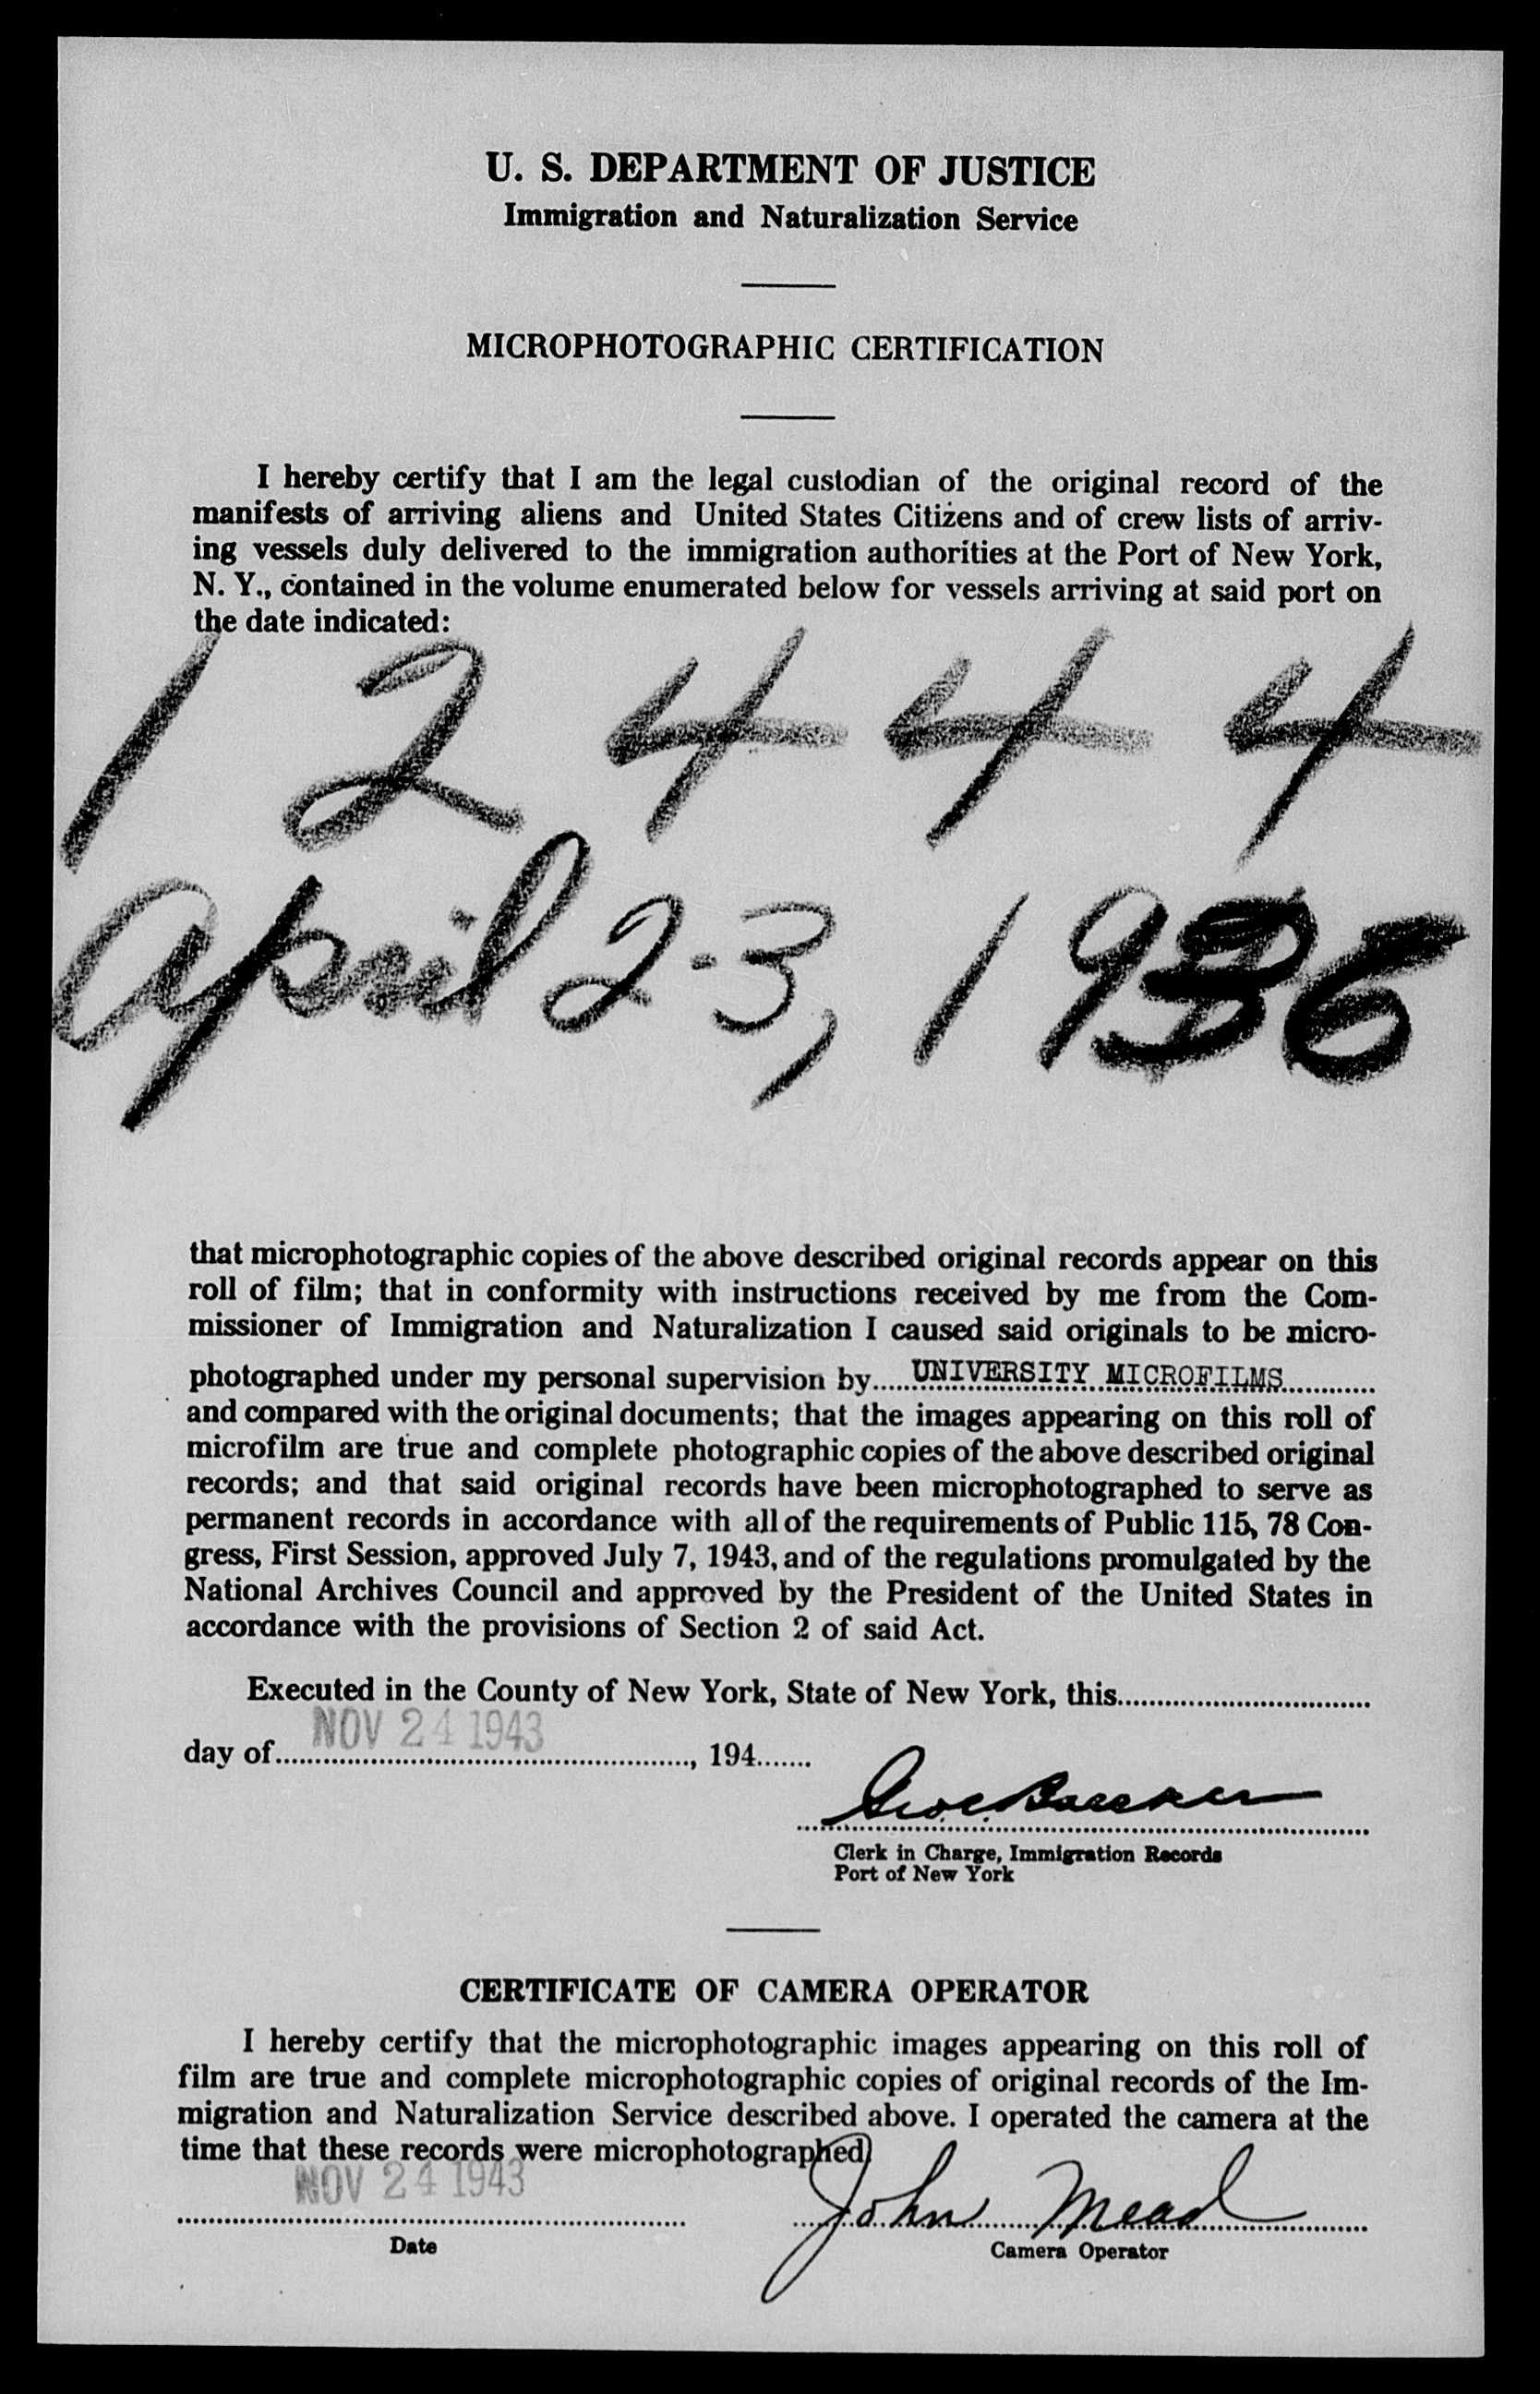 U. S. DEPARTMENT OF JUSTICE
Immigration and Naturalization Service
MICROPHOTOGRAPHIC CERTIFICATION
I hereby certify that I am the legal custodian of the original record of the
manifests of arriving aliens and United States Citizens and of crew lists of arriv-
ing vessels duly delivered to the immigration authorities at the Port of New York,
N. Y., contained in the volume enumerated below for vessels arriving at said port on
the date indicated:
1 2 4 4 4
April 2-3, 1936
that microphotographic copies of the above described original records appear on this
roll of film; that in conformity with instructions received by me from the Com-
missioner of Immigration and Naturalization I caused said originals to be micro-
photographed under my personal supervision by.....UNIVERSITY MICROFILMS............
and compared with the original documents; that the images appearing on this roll of
microfilm are true and complete photographic copies of the above described original
records; and that said original records have been microphotographed to serve as
permanent records in accordance with all of the requirements of Public 115, 78 Con-
gress, First Session, approved July 7, 1943, and of the regulations promulgated by the
National Archives Council and approved by the President of the United States in
accordance with the provisions of Section 2 of said Act.
Executed in the County of New York, State of New York, this................................
NOV 24 1943
day of...................................................., 194.......
Clerk in Charge, Immigration Records
Port of New York
CERTIFICATE OF CAMERA OPERATOR
I hereby certify that the microphotographic images appearing on this roll of
film are true and complete microphotographic copies of original records of the Im-
migration and Naturalization Service described above. I operated the camera at the
time that these records were microphotographed.
NOV 24 1943
John Mead
Date
Camera Operator